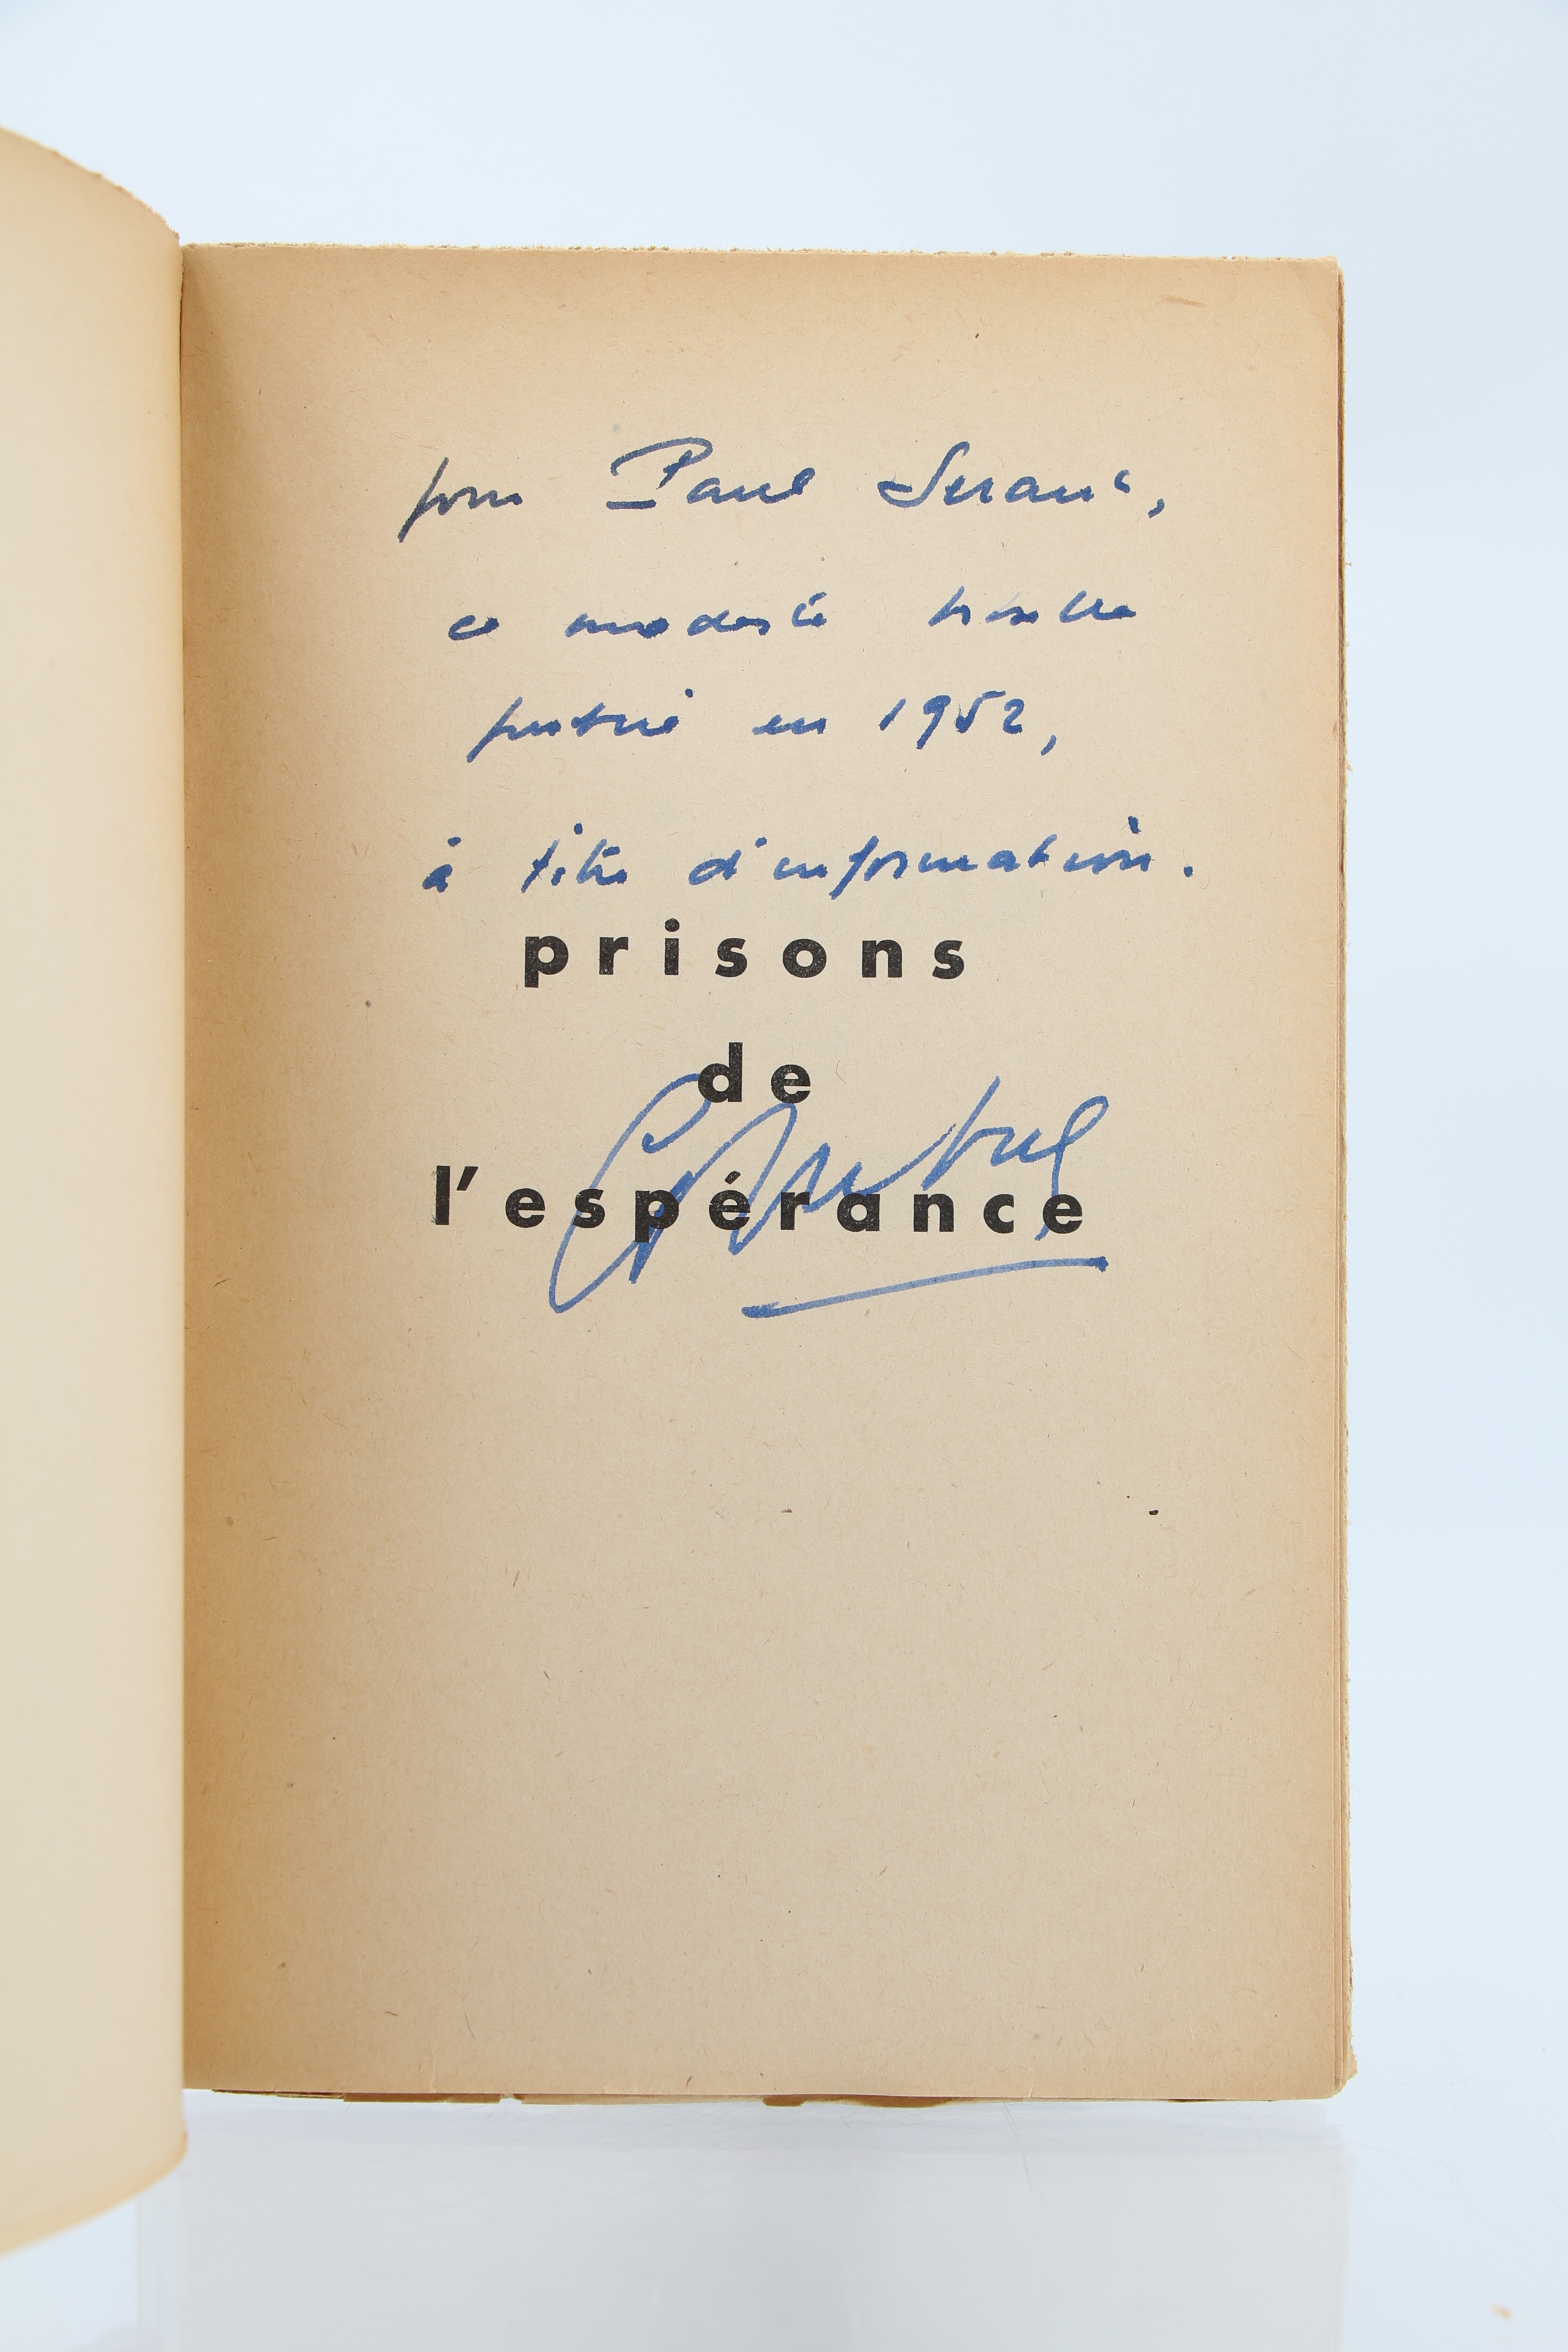 pour Paul Serant,
ce modeste
publié en 1952,
à titre d'information.
prisons
de
l'espérance